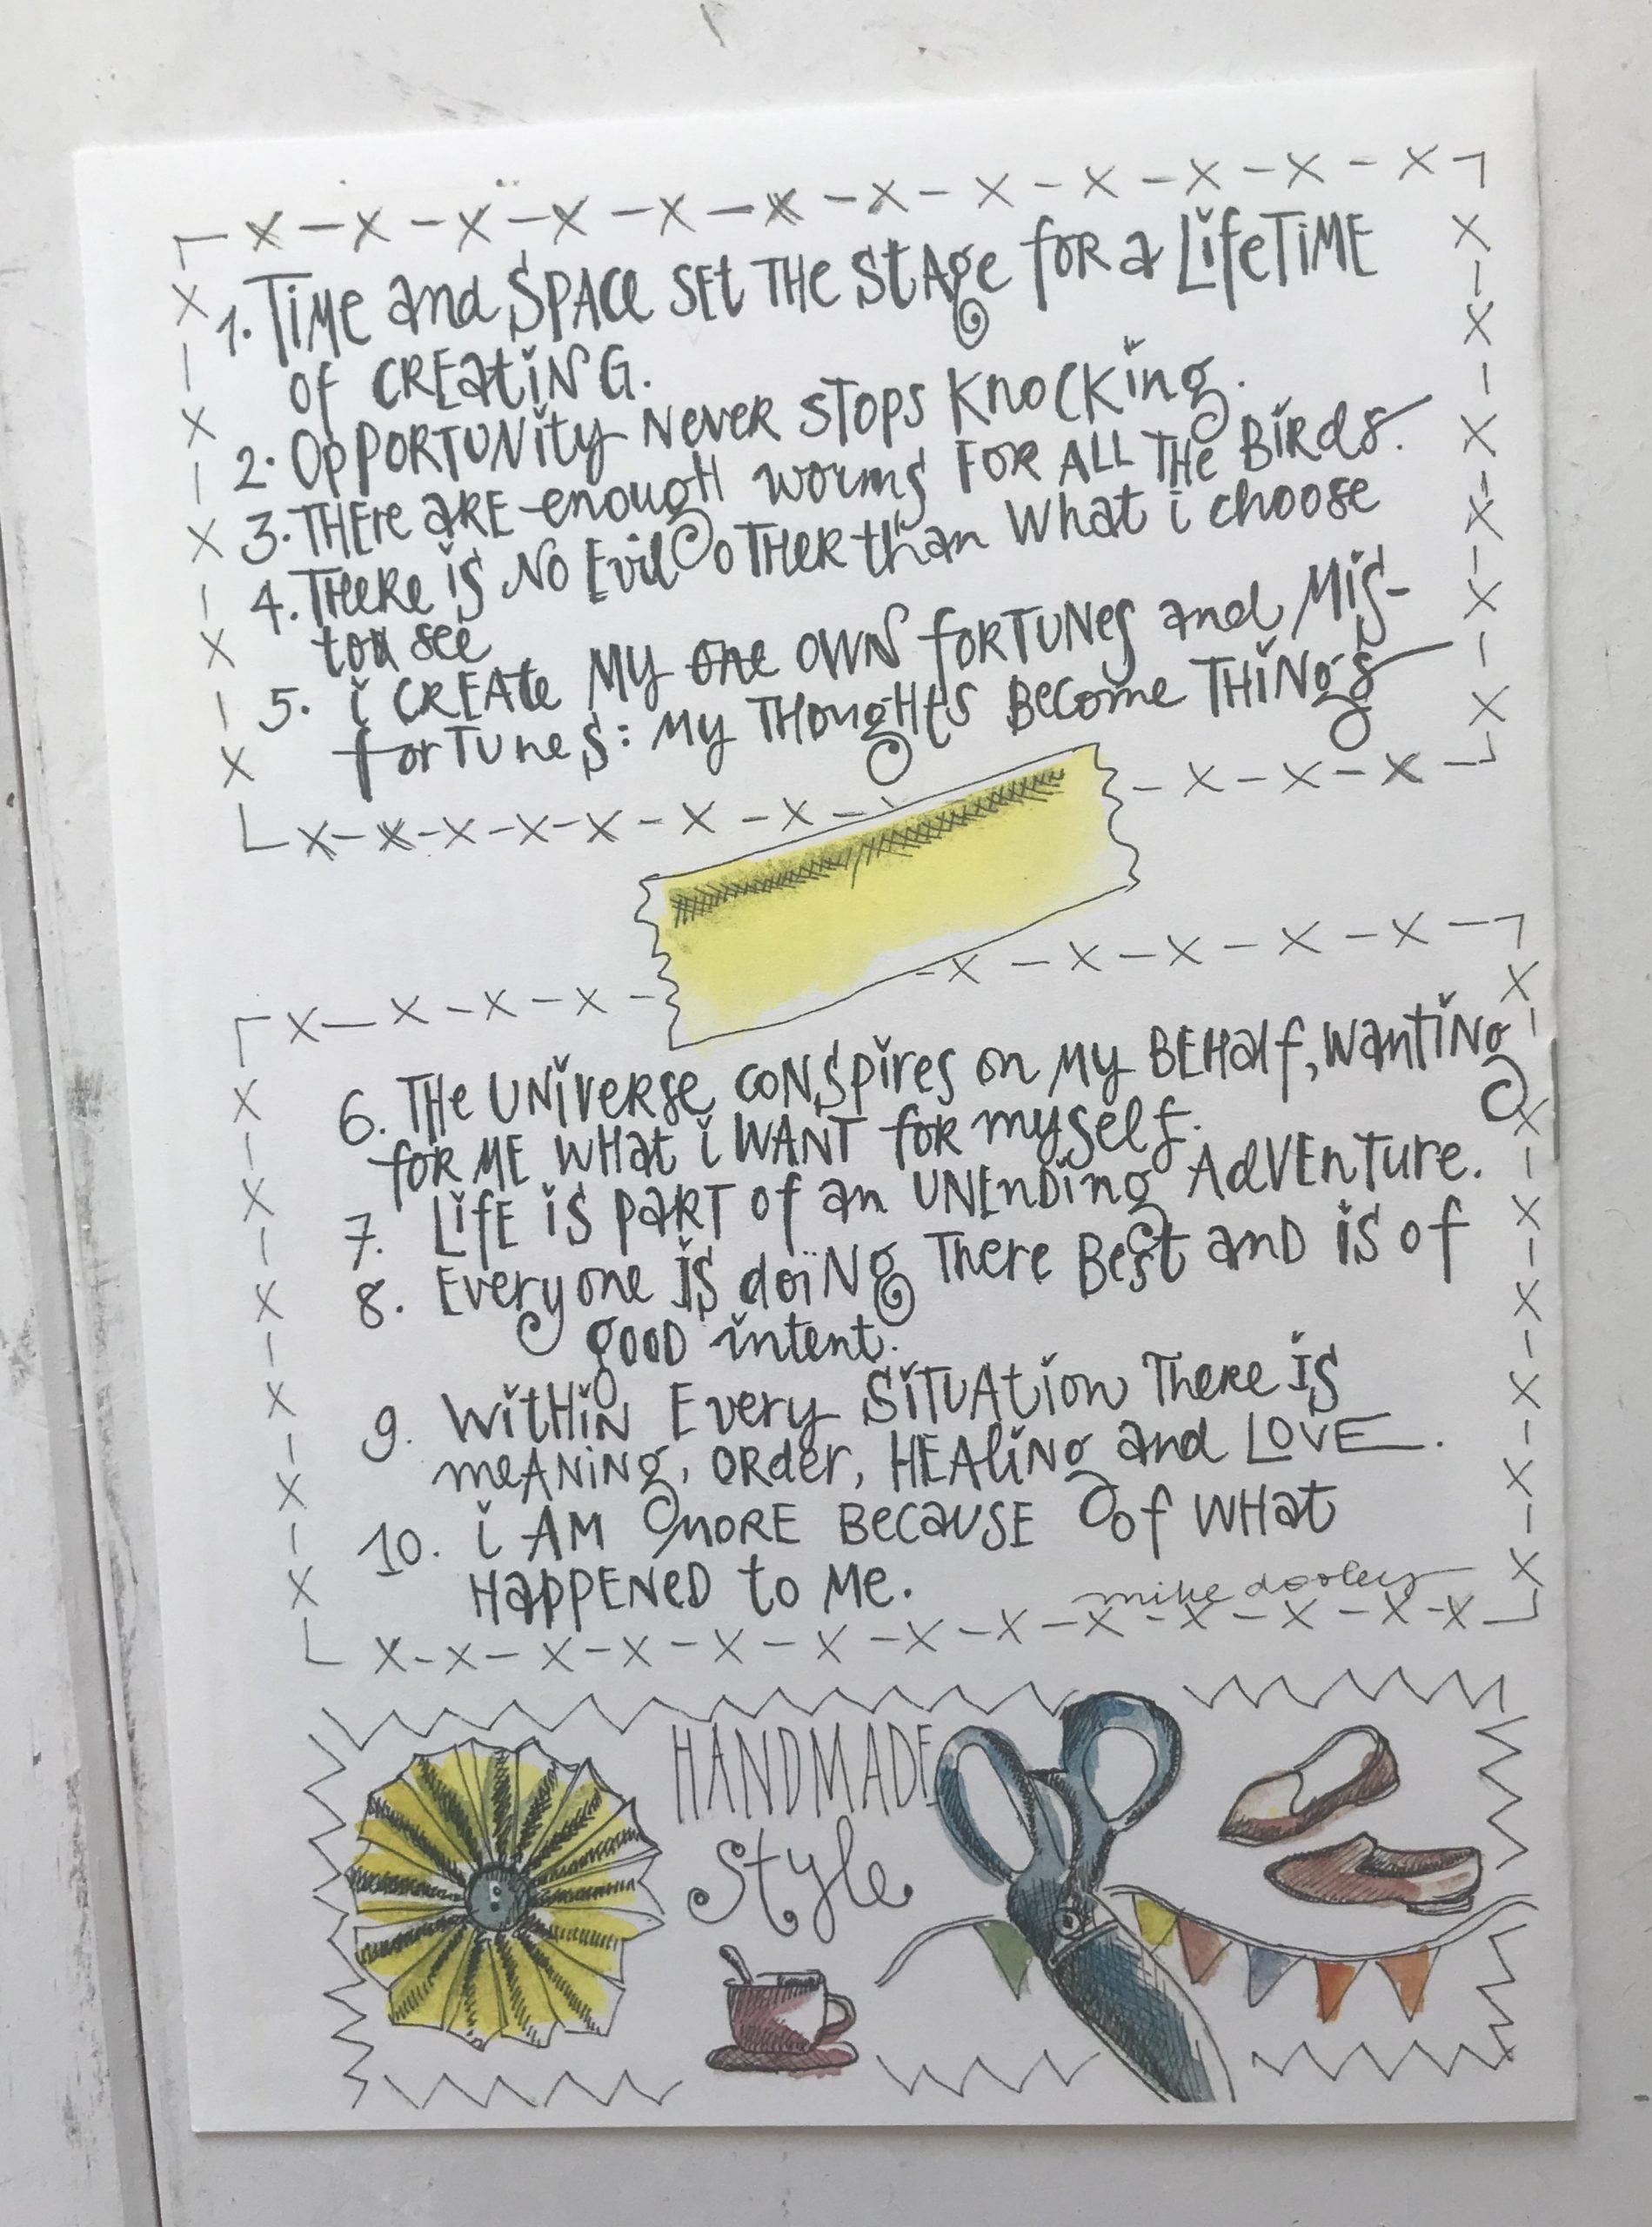 1. Time and SPACE SEt THE StAge for a LifeTIME
of CREatiNG.
2. OppORTUNity NeveR STOPS KnocKing.
3. THEre aRE enough worms FOR ALL THe BiRds.
4. THeRe is NO Evil OTHER than What i choose
to see
5. i CREATe My one OWN foRTUNes and Mis-
forTunes: My THougHts Become THiNgs
6. THe UNiVeRse conspires on My BEHalf, wantiNg
foR ME wHat i WANT foR myself.
7. LifE is paRT of an UNEnDing AdVEnTure.
8. Everyone is doiNg There Best and is of
gOOD intent.
9. WitHiN Every SiTUAtion THeRe is
meANiNg, ORder, HEAliNg and LOVE.
10. i AM MORE BecaUSE of WHat
HappENeD to Me.
mike dooley
HANDMADE
Style